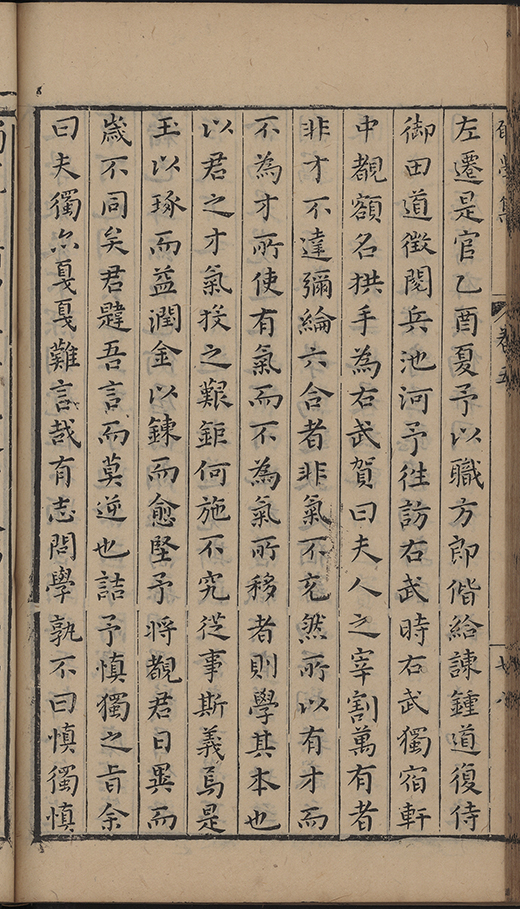 左遷是官乙酉夏予以職方郎偕給諫鍾道復侍
御田道徵閱兵池河予徃訪右武時右武獨宿軒
中覩額名拱手為右武賀曰夫人之宰割萬有者
非才不達彌綸六合者非氣不充然所以有才而
不為才所使有氣而不為氣所移者則學其本也
以君之才氣投之艱鉅何施不究從事斯義焉是
玉以琢而益潤金以鍊而愈堅予將覩君日異而
歲不同矣君韙吾言而莫逆也詰予慎獨之旨余
曰夫獨尒戛戛難言哉有志問學孰不曰慎獨慎
卷五